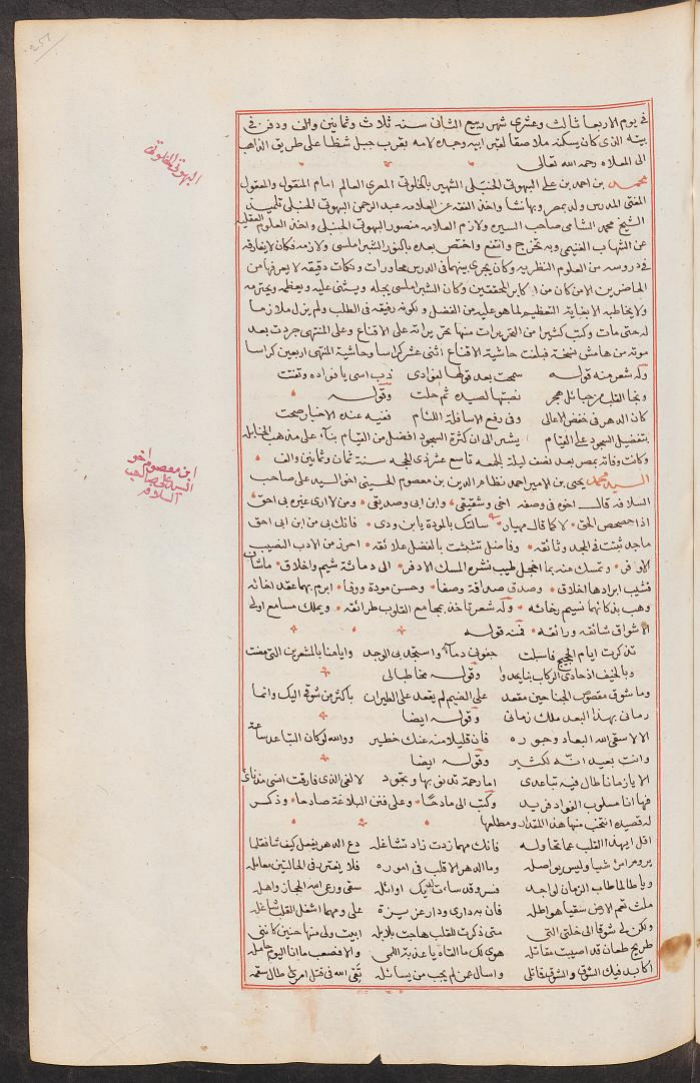 في يوم الاربعا ثالث وعشرى شهر ربيع الثانى سنه ثلاث وثمانين والف ودفن في
بيته الذى كان يسكنه ملاصقا لقبر ابيه وجده لامه بقرب جبل شظا على طريق الذاهب
الى المعلاه رحمه الله تعالى
محمد بن احمد بن على البهوتى الحنبلى الشهير بالخلوتى المصرى العالم امام المنقول والمعقول
المفتى المدرس ولد بمصر وبها نشا واخذ الفقه عن العلامه عبد الرحمن البهوتى الحنبلى تلميذ
الشيخ محمد الشامى صاحب السيره ولازم العلامه منصور البهوتى الحنبلى واخذ العلوم العقليه
عن الشهاب الغنيمى وبه تخرج وانتفع واختص بعده بالنور الشبراملسى ولازمه فكان لا يفارقه
في دروسه من العلوم النظريه وكان يجرى بينهما فى الدرس محاورات ونكات دقيقه لا يعرفها من
الحاضرين الا من كان من اكابر المحققين وكان الشبراملسى يجله ويثنى عليه ويعظمه ويحترمه
ولا يخاطبه الا بغاية التعظيم لما هو عليه من الفضل ولكونه رفيقه فى الطلب ولم يزل ملازما
له حتى مات وكتب كثيرا من التحريرات منها تحريراته على الاقناع وعلى المنتهى جردت بعد
موته من هامش نسخته فبلغت حاشية الاقناع اثنى عشر كراسا وحاشية المنتهى اربعين كراسا
وله شعر منه قوله سمحت بعد قولها لفوادى ذب اسى يا فواده وتفتت
ونجا القلب من حبائل هجر نصبتها لصيده ثم حلت وقوله
كان الدهر فى خفض الاعالى وفى رفع الاسافلة اللئام فقيه عنده الاخبار صحت
بتفضيل السجود على القيام يشير الى ان كثرة السجود افضل من القيام بناء على مذهب الحنابله
وكانت وفاته بمصر بعد نصف ليلة الجمعه تاسع عشر ذى الحجه سنة ثمان وثمانين والف
السيد محمد يحيى بن الامير احمد نظام الدين بن معصوم الحسينى اخو السيد على صاحب
السلافه قال اخوه فى وصفه اخى وشقيقى وابن ابى وصديقى ومن لا ارى غيره بى احق
اذا حصحص الحق لا كما قال مهيار سالتك بالمودة يا بن ودى فانك بى من ابن ابى احق
ماجد ثبتت فى المجد وثائقه وفاضل تشبثت بالفضل علائقه احرز من الادب النصيب
الاوفر وتمسك منه بما اخجل طيب نشره المسك الاذفر الى دماثة شيم واخلاق ماشان
قشيب ابرادها اخلاق وصدق صداقة وصفا وحسن مودة ووفا ابرم بها عقد اخائه
وهب بذكائها نسيم رخائه وله شعر تاخذ بمجامع القلوب طرائقه ويملك مسامع اولى
الاشواق شائقه ورائقه فمنه قوله
تذكرت ايام الحجيج فاسبلت جفونى دماء واستجد بى الوجد وايامنا بالمشعرين التى مضت
وبالخيف اذ حادى الركاب بنا يحدوا وقوله مخاطبا لى
وما شوق مقصوص الجناحين مقعد على الضيم لم يقدر على الطيران باكثر من شوقى اليك وانما
رمانى بهذا البعد عنك زمانى وقوله ايضا
الا لا سقى الله البعاد وجوره فان قليلا منه عنك خطير ووالله لو كان التباعد ساعة
وانت بعيد انه لكثير وقوله ايضا
الا يا زمانا طال فيه تباعدى اما رحمة تدنو بها وتجود لالقى الذى فارقت انسى مذ نائى
فها انا مسلوب الفواد فريد وكتب الى مادحا وعلى فنن البلاغة صادحا وذكر
له قصيده انتخب منها هذا المقدار ومطلعها
اقل ايهذا القلب عما تحاوله فانك مهما زدت زاد تشاغله دع الدهر يفعل كيف شا فقلما
يروم امرئ شيا وليس يواصله وما الدهر الا قلب فى اموره فلا يغترر فى الحالتين معامله
ويا طالما طاب الزمان لواجد فسر وقد ساءت لديك اوائله سقى ورعى الله الحجاز واهله
ملث تعم الارض سقيا هواطله فان به دارى ودار عزيزة على ومهما اشغل القلب شاغله
ولكن لى شوقا الى خلتى التى متى ذكرت للقلب هاجت بلابله ابيت ولى منها حنين كاننى
طريح طعان قد اصيبت مقاتله هوى لك ما القاه يا عذبة اللمى والا فصعب ما انا اليوم حامله
اكابد فيك الشوق والشوق قاتلى واسال عن لم يجب من يسائله تقى الله فى قتل امرئ طال سقمه
البهوتى الخلوتى
ابن معصوم اخو
السيد على صاحب
السلافه